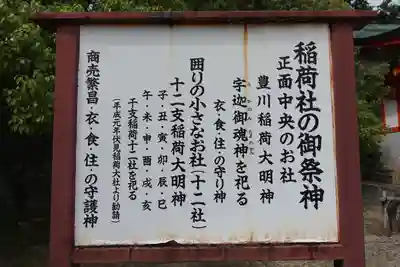 稲荷社の御祭神
正面中央のお社
豊川稲荷大明神
宇迦御魂神を祀る
衣・食・住の守り神
囲りの小さなお社(十二社)
十二支稲荷大明神
子・丑・寅・卯・辰・巳
午・未・申・酉・戌・亥
干支稲荷十二社を祀る
(平成元年伏見稲荷大社より勧請)
商売繁昌・衣・食・住の守護神